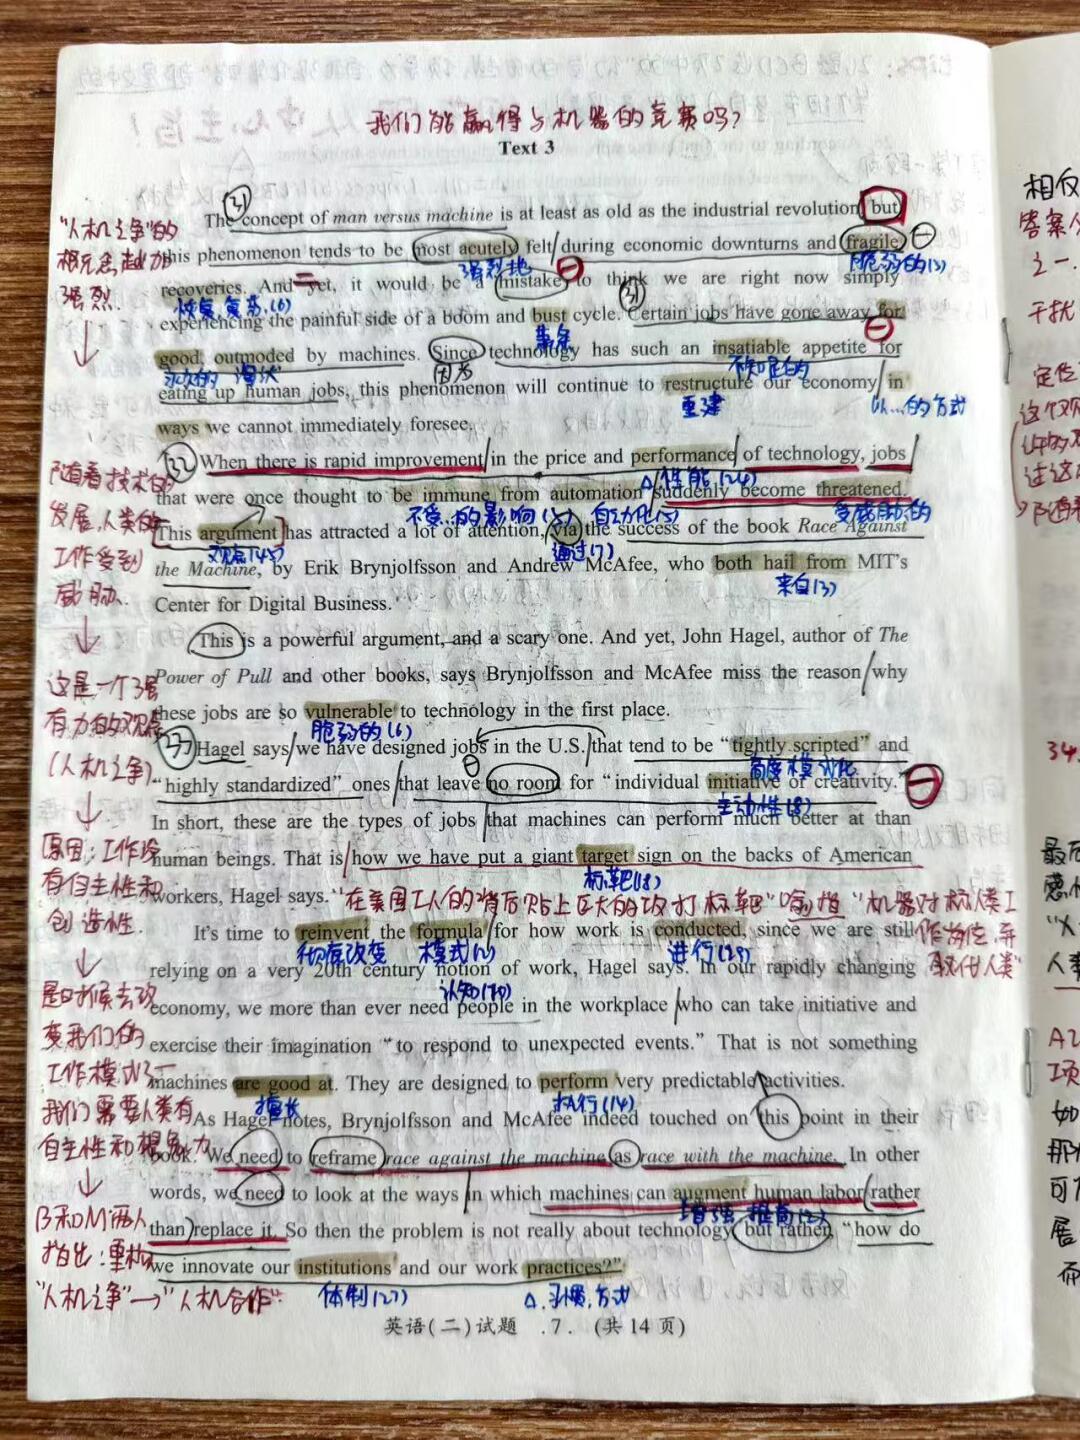 我们能赢得与机器的竞赛吗？
Text 3
31
The concept of man versus machine is at least as old as the industrial revolution, but
"人机之争"的
this phenomenon tends to be most acutely felt during economic downturns and fragile
概念愈加
强烈地
脆弱的(3)
强烈.
recoveries. And yet, it would be a mistake to think we are right now simply
恢复,复苏,(6)
31
experiencing the painful side of a boom and bust cycle. Certain jobs have gone away for
萧条
good, outmoded by machines. Since technology has such an insatiable appetite for
永久的
因为
不知足的
eating up human jobs, this phenomenon will continue to restructure our economy in
重建
以...的方式
ways we cannot immediately foresee.
32
When there is rapid improvement in the price and performance of technology, jobs
随着技术的
性能(24)
that were once thought to be immune from automation suddenly become threatened.
发展,人类的
不受...的影响
自动化(5)
受威胁的
This argument has attracted a lot of attention, via the success of the book Race Against
工作受到
观点(45)
通过(7)
the Machine, by Erik Brynjolfsson and Andrew McAfee, who both hail from MIT's
来自(3)
威胁.
Center for Digital Business.
This is a powerful argument, and a scary one. And yet, John Hagel, author of The
这是一个强
Power of Pull and other books, says Brynjolfsson and McAfee miss the reason why
有力的观点
these jobs are so vulnerable to technology in the first place.
脆弱的(6)
33
Hagel says we have designed jobs in the U.S. that tend to be "tightly scripted" and
(人机之争)
高度模式化
"highly standardized" ones that leave no room for "individual initiative or creativity."
主动性(8)
In short, these are the types of jobs that machines can perform much better at than
原因:工作没
human beings. That is how we have put a giant target sign on the backs of American
有自主性和
标靶(8)
workers, Hagel says.
"在美国工人的背后贴上巨大的攻打标靶"喻指"机器对标人类工
创造性.
It's time to reinvent the formula for how work is conducted, since we are still
作岗位,并
彻底改变
模式(6)
进行(29)
取代人类"
relying on a very 20th century notion of work, Hagel says. In our rapidly changing
认知(70)
是时候去改
economy, we more than ever need people in the workplace who can take initiative and
变我们的
exercise their imagination "to respond to unexpected events." That is not something
工作模式了—
machines are good at. They are designed to perform very predictable activities.
擅长
执行(14)
我们需要人类有
As Hagel notes, Brynjolfsson and McAfee indeed touched on this point in their
自主性和想象力
book. We need to reframe race against the machine as race with the machine. In other
words, we need to look at the ways in which machines can augment human labor rather
增强 提高(2)
B和M两人
than replace it. So then the problem is not really about technology, but rather, "how do
指出:重构
we innovate our institutions and our work practices?"
体制(27)
习惯,方式
"人机之争"→"人机合作".
英语(二)试题 .7. (共14页)
相反
答案
之一.
干扰
定位
这个观
34.
最后
人类
项
如
那
可
展
而